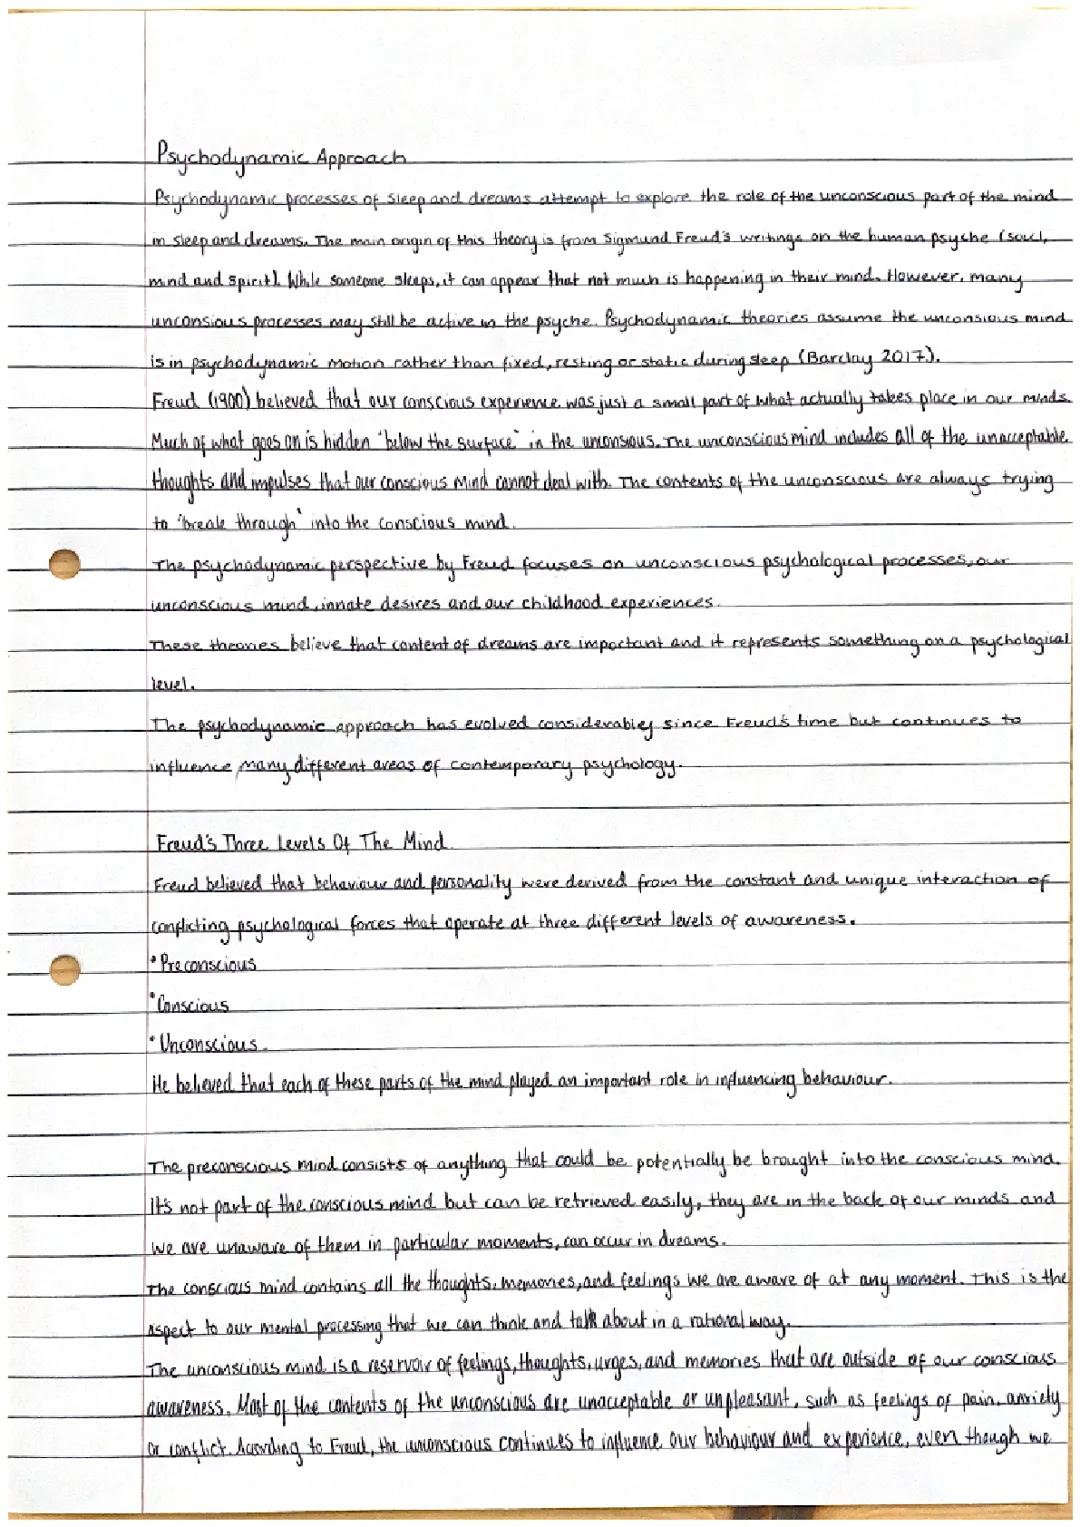 Psychodynamic Approach
Psychodynamic processes of sleep and dreams attempt to explore the role of the unconscious part of the mind
in sleep and dreams. The main origin of this theory is from Sigmund Freud's writings on the human psyche (soul,
mind and spirit). While someone sleeps, it can appear that not much is happening in their mind. However, many
unconsious processes may still be active in the psyche. Psychodynamic theories assume the unconsious mind
is in psychodynamic motion rather than fixed, resting or static during sleep (Barclay 2017).
Freud (1900) believed that our conscious experience was just a small part of what actually takes place in our minds.
Much of what goes on is hidden "below the surface" in the unconsious. The unconscious mind includes all of the unacceptable
thoughts and impulses that our conscious mind cannot deal with. The contents of the unconscious are always trying
to 'break through' into the conscious mind.
The psychodynamic perspective by Freud focuses on unconscious psychological processes, our
unconscious mind, innate desires and our childhood experiences.
These theories believe that content of dreams are important and it represents something on a psychological
level.
The psychodynamic approach has evolved considerabley since Freud's time but continues to
influence many different areas of contemporary psychology.
Freud's Three Levels Of The Mind.
Freud believed that behaviour and personality were derived from the constant and unique interaction of
conflicting psychological forces that operate at three different levels of awareness.
• Preconscious
• Conscious
• Unconscious.
He believed that each of these parts of the mind played an important role in influencing behaviour.
The preconscious mind consists of anything that could be potentially be brought into the conscious mind.
It's not part of the conscious mind but can be retrieved easily, they are in the back of our minds and
we are unaware of them in particular moments, can occur in dreams.
The conscious mind contains all the thoughts, memories, and feelings we are aware of at any moment. This is the
aspect to our mental processing that we can think and talk about in a rational way.
The unconscious mind is a reservoir of feelings, thoughts, urges, and memories that are outside of our conscious
awareness. Most of the contents of the unconscious are unacceptable or unpleasant, such as feelings of pain, anxiety
or conflict. According to Freud, the unconscious continues to influence our behaviour and experience, even though we